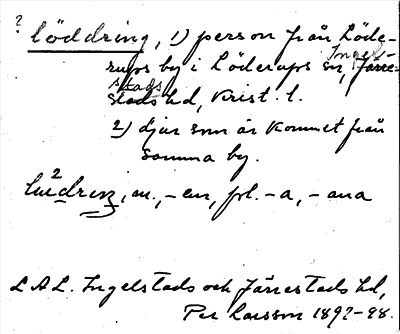 ? löddring, 1) person från Löde-
rups by i Löderups sn, Ingel-
stads hd, Krist. l.
2) djur som är kommet från
samma by.
m., -en, pl. -a, -ana
LAL. Ingelstads och Järrestads hd,
Per Larsson 1892-98.